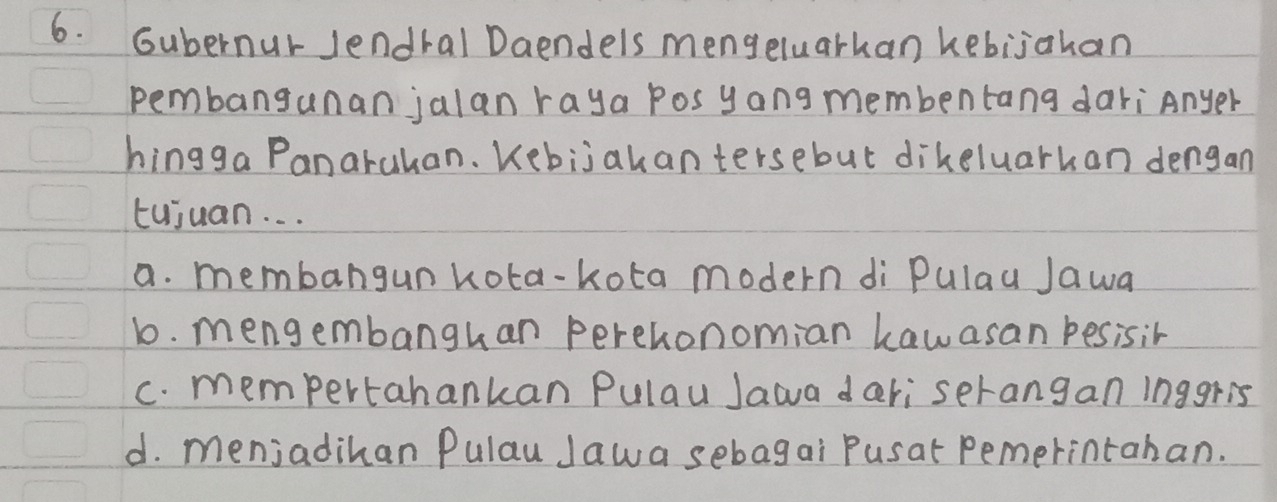 6. Gubernur Jendral Daendels mengeluarkan kebijakan
pembangunan jalan raya Pos yang membentang dari Anyer
hingga Panarukan. Kebijakan tersebut dikeluarkan dengan
tujuan...
a. membangun kota-kota modern di Pulau Jawa
b. mengembangkan perekonomian kawasan pesisir
c. mempertahankan Pulau Jawa dari serangan Inggris
d. menjadikan Pulau Jawa sebagai Pusat Pemerintahan.